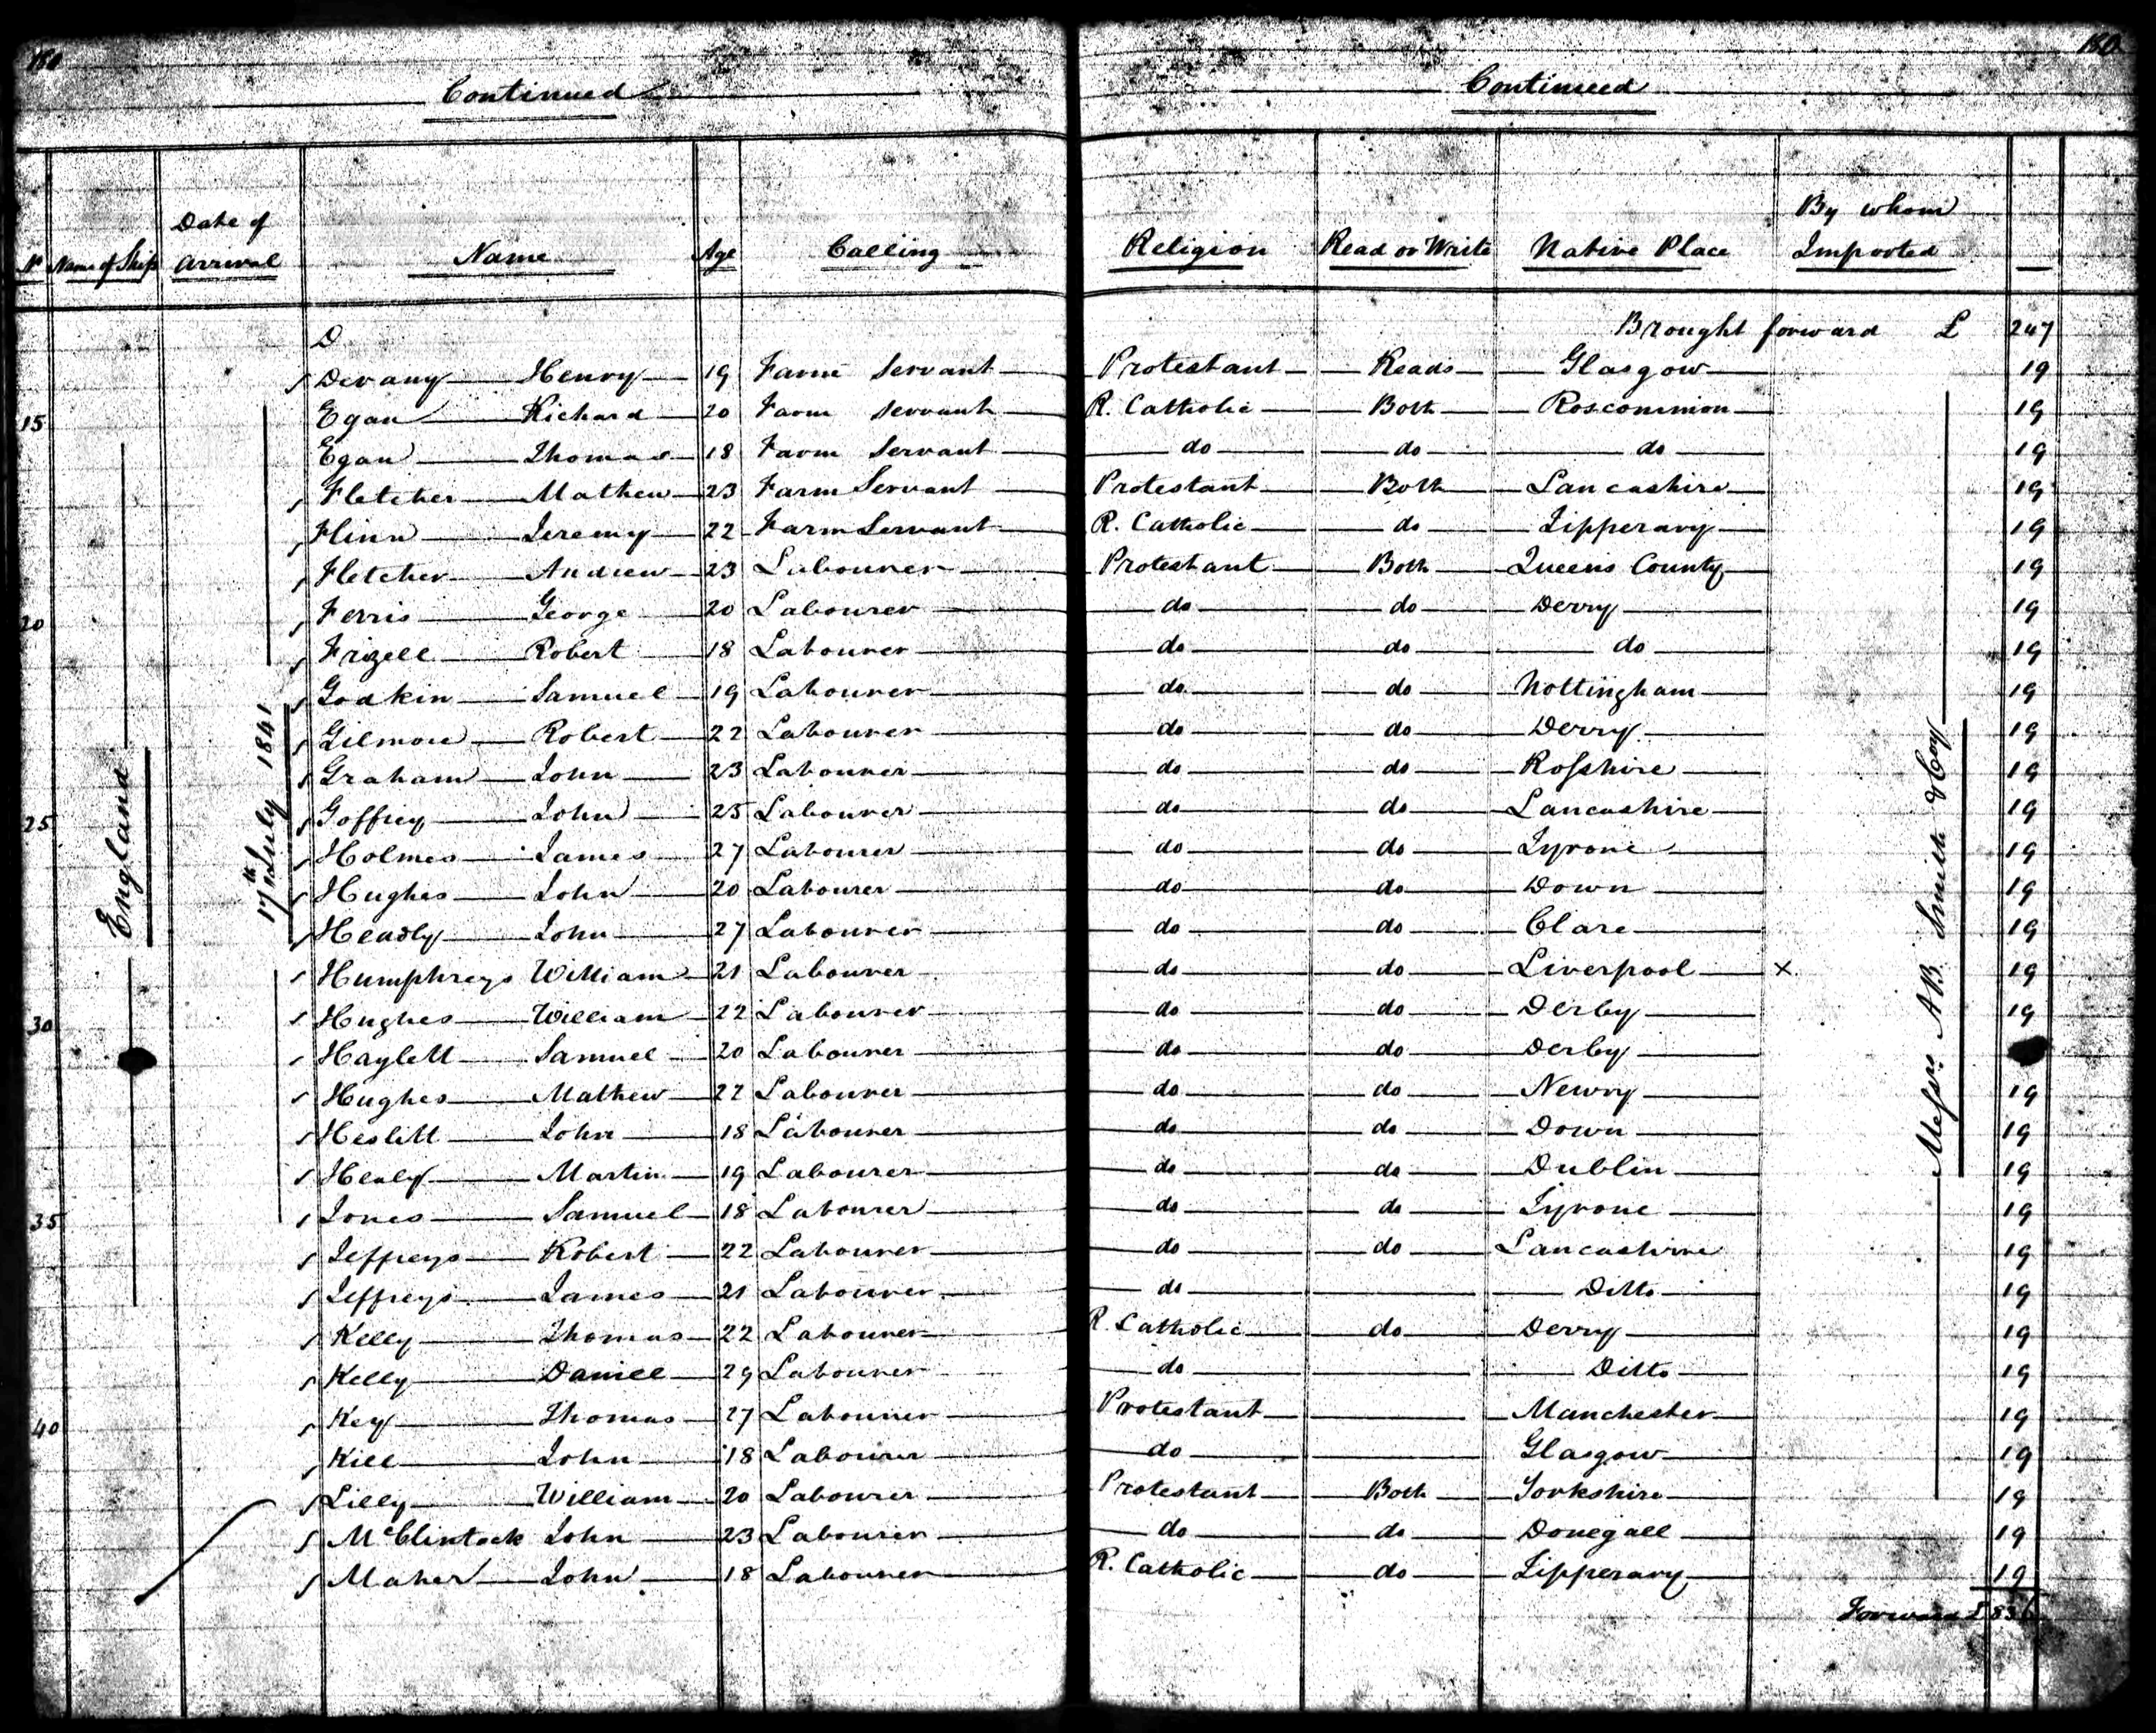 180 180
Continued Continued
No Name of Ship Date of Arrival Name Age Calling Religion Read or Write Native Place By whom Imported
D Brought forward £ 247
Devany Henry 19 Farm Servant Protestant Reads Glasgow 19
15 Egan Richard 20 Farm Servant R. Catholic Both Roscommon 19
Egan Thomas 18 Farm Servant do do do 19
Fletcher Mathew 23 Farm Servant Protestant Both Lancashire 19
Flinn Jeremy 22 Farm Servant R. Catholic do Tipperary 19
Fletcher Andrew 23 Labourer Protestant Both Queens County 19
20 Ferris George 20 Labourer do do Derry 19
Frizell Robert 18 Labourer do do do 19
Godkin Samuel 19 Labourer do do Nottingham 19
Gilmore Robert 22 Labourer do do Derry 19
Graham John 23 Labourer do do Rosshire 19
25 Goffrey John 25 Labourer do do Lancashire 19
Holmes James 27 Labourer do do Tyrone 19
Hughes John 20 Labourer do do Down 19
Headly John 27 Labourer do do Clare 19
Humphreys William 21 Labourer do do Liverpool × 19
30 Hughes William 22 Labourer do do Derby 19
Haylett Samuel 20 Labourer do do Derby
Hughes Mathew 22 Labourer do do Newry 19
Heslitt John 18 Labourer do do Down 19
Healy Martin 19 Labourer do do Dublin 19
35 Jones Samuel 18 Labourer do do Tyrone 19
Jeffreys Robert 22 Labourer do do Lancashire 19
Jeffreys James 21 Labourer do Ditto 19
Kelly Thomas 22 Labourer R. Catholic do Derry 19
Kelly Daniel 29 Labourer do Ditto 19
40 Key Thomas 27 Labourer Protestant Manchester 19
Kill John 18 Labourer do Glasgow 19
Lilly William 20 Labourer Protestant Both Yorkshire 19
McClintock John 23 Labourer do do Donegall 19
Maher John 18 Labourer R. Catholic do Tipperary 19
Forward £ 836
England
17th July 1841
Messrs A B Smith & Coy